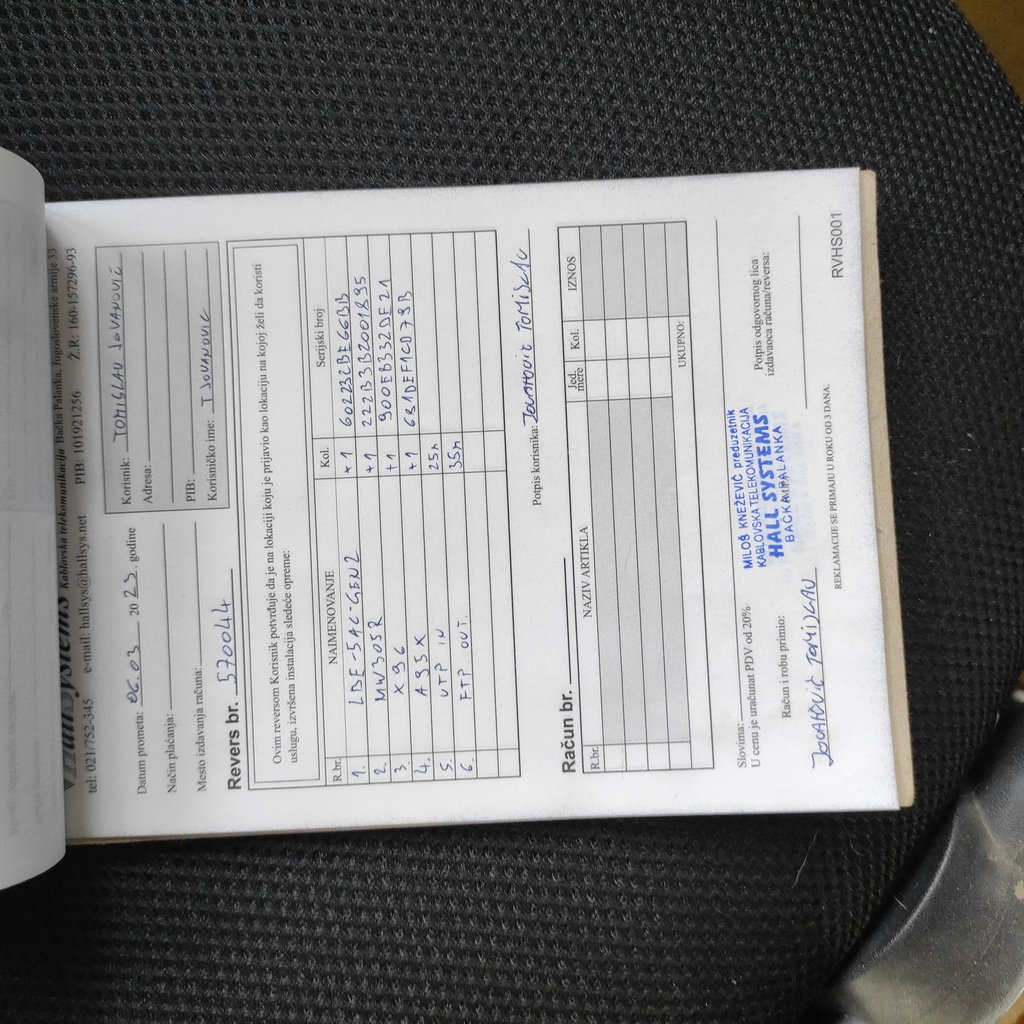 HallSystems Kablovska telekomunikacija Bačka Palanka, Jugoslovenske armije 33
tel: 021/752-345 e-mail: hallsys@hallsys.net PIB: 101921256 Ž.R.: 160-157296-93
Datum prometa: 06.03 2023. godine
Način plaćanja:
Mesto izdavanja računa:
Korisnik: TOMISLAV JOVANOVIĆ
Adresa:
PIB:
Korisničko ime: TJOVANOVIC
Revers br. 570044
Ovim reversom Korisnik potvrđuje da je na lokaciji koju je prijavio kao lokaciju na kojoj želi da koristi
uslugu, izvršena instalacija sledeće opreme:
R.br. NAIMENOVANJE Kol. Serijski broj
1. LDF-5AC-GEN2 +1 602232BE66BB
2. MW305R +1 222B3B2001895
3. X96 +1 900EB332DE21
4. A95X +1 681DEF1CD79B
5. UTP IN 25m
6. FTP OUT. 35m
Potpis korisnika: JOVANOVIĆ TOMISLAV
Račun br.
R.br. NAZIV ARTIKLA Jed. mere Kol. IZNOS
UKUPNO:
Slovima:
U cenu je uračunat PDV od 20%
Račun i robu primio:
JOVANOVIĆ TOMISLAV
MILOŠ KNEŽEVIĆ preduzetnik
KABLOVSKA TELEKOMUNIKACIJA
HALL SYSTEMS
BAČKA PALANKA
Potpis odgovornog lica
izdavaoca računa/reversa:
REKLAMACIJE SE PRIMAJU U ROKU OD 3 DANA.
RVHS001